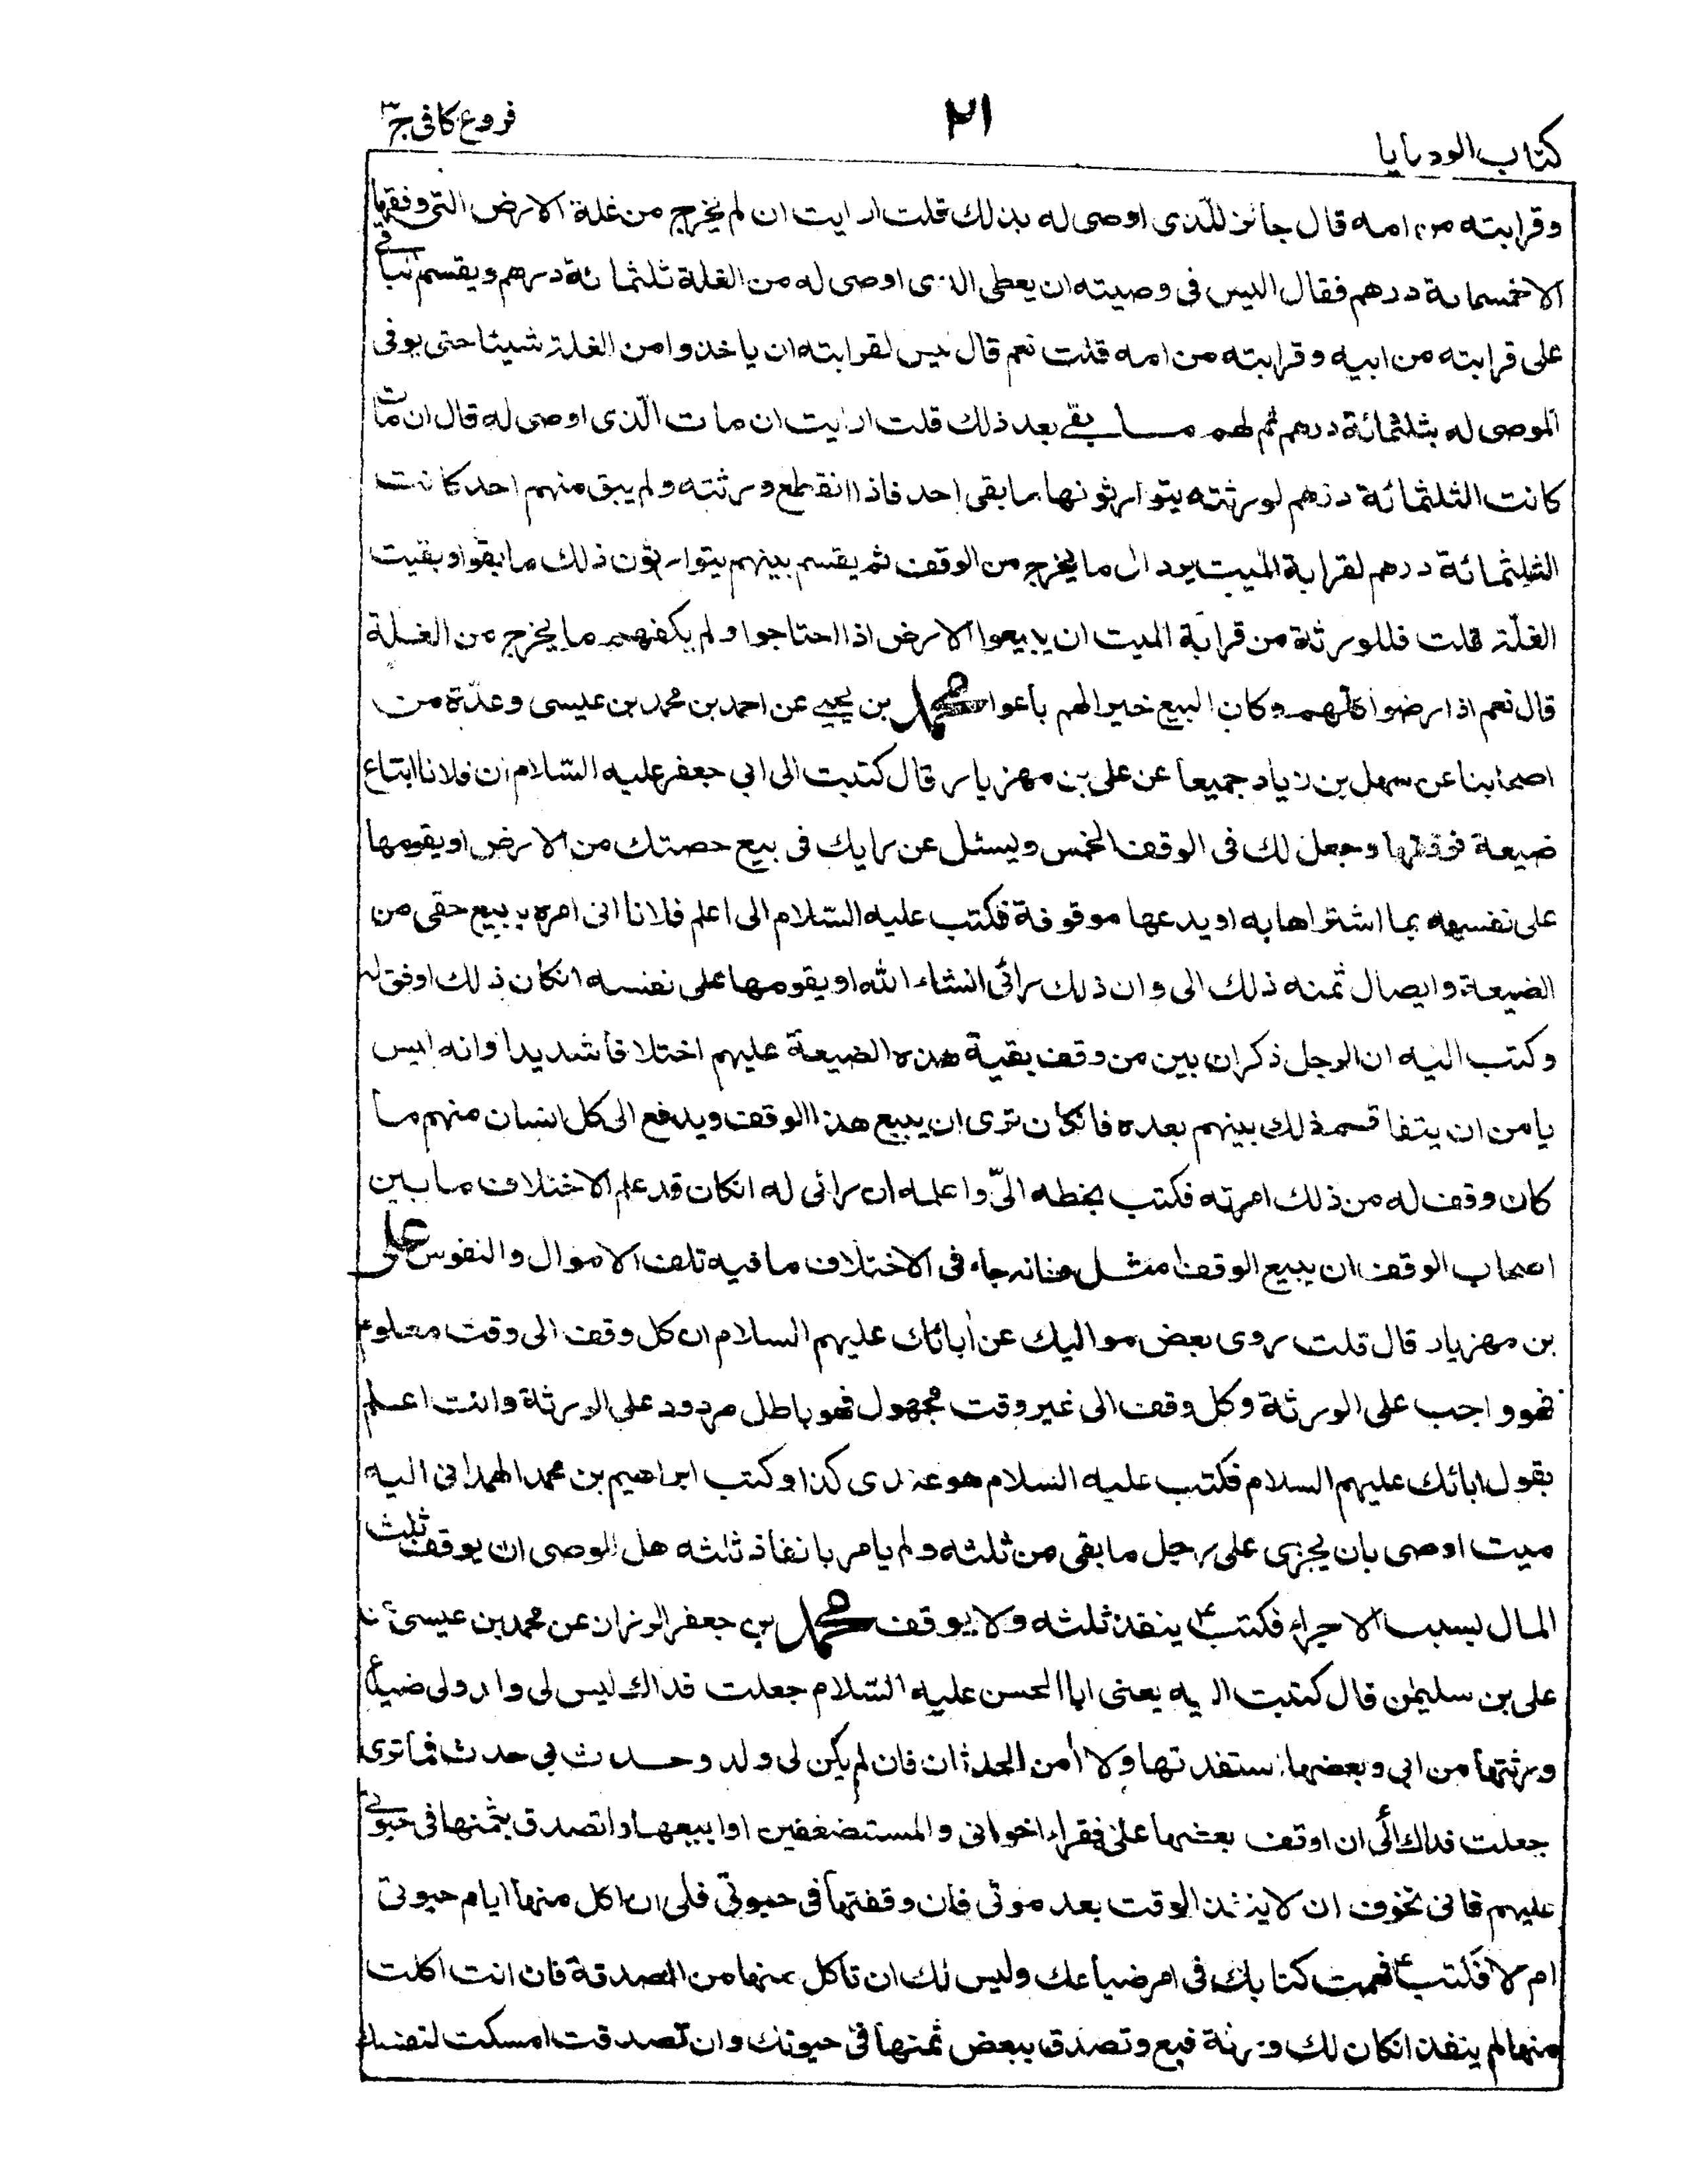 كتاب الوصايا ٢١ فروع كافى ج٣
وقرابته من امه قال جائز للّذى اوصى له بذلك قلت ارايت ان لم يخرج من غلة الارض التى وقفها
الا خمسمائة درهم فقال اليس فى وصيته ان يعطى الذى اوصى له من الغلة ثلثمائة درهم ويقسم الباقى
على قرابته من ابيه وقرابته من امه قلت نعم قال ليس لقرابته ان ياخذوا من الغلة شيئا حتى يوفى
الموصى له بثلثمائة درهم ثم لهم ما يبقى بعد ذلك قلت ارايت ان مات الّذى اوصى له قال ان مات
كانت الثلثمائة درهم لورثته يتوارثونها ما بقى احد فاذا انقطع ورثته ولم يبق منهم احد كانت
الثلثمائة درهم لقرابة الميت يرد الى ما يخرج من الوقف ثم يقسم بينهم يتوارثون ذلك ما بقوا وبقيت
الغلّة قلت فللورثة من قرابة الميت ان يبيعوا الارض اذا احتاجوا ولم يكفهم ما يخرج من الغلة
قال نعم اذا رضوا كلهم وكان البيع خيرا لهم باعوا محمد بن يحيى عن احمد بن محمد بن عيسى وعدّة من
اصحابنا عن سهل بن زياد جميعا عن على بن مهزيار قال كتبت الى ابى جعفر عليه السّلام ان فلانا ابتاع
ضيعة فوقفها وجعل لك فى الوقف الخمس ويسئل عن رايك فى بيع حصتك من الارض او يقومها
على نفسه بما اشتراها به او يدعها موقوفة فكتب عليه السّلام الى اعلم فلانا انى امره ببيع حقى من
الضيعة وايصال ثمنه ذلك الى وان ذلك رائى انشاء الله او يقومها على نفسه انكان ذلك اوفق له
وكتب اليه ان الرجل ذكر ان بين من وقف بقية هذه الضيعة عليهم اختلافا شديدا وانه ليس
يامن ان يتفاقم ذلك بينهم بعده فانكان ترى ان يبيع هذا الوقف ويدفع الى كل انسان منهم ما
كان وقف له من ذلك امرته فكتب بخطه الىّ واعلمه ان رائى له انكان قد علم الاختلاف ما بين
اصحاب الوقف ان يبيع الوقف امثل فانه جاء فى الاختلاف ما فيه تلف الاموال والنفوس على
بن مهزيار قال قلت روى بعض مواليك عن ابائك عليهم السلام ان كل وقف الى وقت معلوم
فهو واجب على الورثة وكل وقف الى غير وقت مجهول فهو باطل مردود على الورثة وانت اعلم
بقول ابائك عليهم السلام فكتب عليه السلام هو عندى كذا وكتب ابراهيم بن محمد الهمدانى اليه
ميت اوصى بان يجرى على رجل ما بقى من ثلثه ولم يامر بانفاذ ثلثه هل للوصى ان يوقف ثلث
المال بسبب الاجراء فكتب ع ينفذ ثلثه ولا يوقف محمد بن جعفر الرزاز عن محمد بن عيسى عن
على بن سليمن قال كتبت اليه يعنى ابا الحسن عليه السّلام جعلت فداك ليس لى ولد ولى ضياع
ورثتها من ابى وبعضها استفدتها ولا أمن الحدثان فان لم يكن لى ولد وحدث بى حدث فما ترى
جعلت فداك لى ان اوقف بعضها على فقراء اخوانى والمستضعفين او ابيعها واتصدق بثمنها فى حيوتى
عليهم فانى تخوف ان لا ينفذ الوقف بعد موتى فان وقفتها فى حيوتى فلى ان اكل منها ايام حيوتى
ام لا فكتب ع فهمت كتابك فى امر ضياعك وليس لك ان تاكل منها من الصدقة فان انت اكلت
منها لم ينفذ انكان لك ورثة فبع وتصدق ببعض ثمنها فى حيوتك وان تصدقت امسكت لنفسك